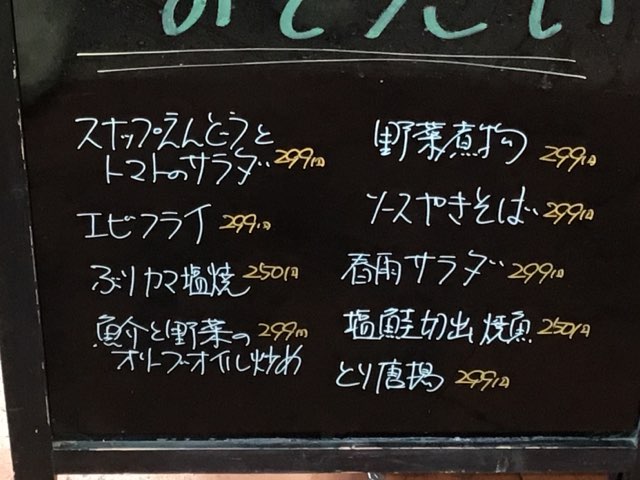 スナップえんどうと
トマトのサラダ 299円
エビフライ 299円
ぶりカマ塩焼 250円
魚介と野菜の 299円
オリーブオイル炒め
野菜煮物 299円
ソースやきそば 299円
春雨サラダ 299円
塩鮭切出焼魚 250円
とり唐揚 299円